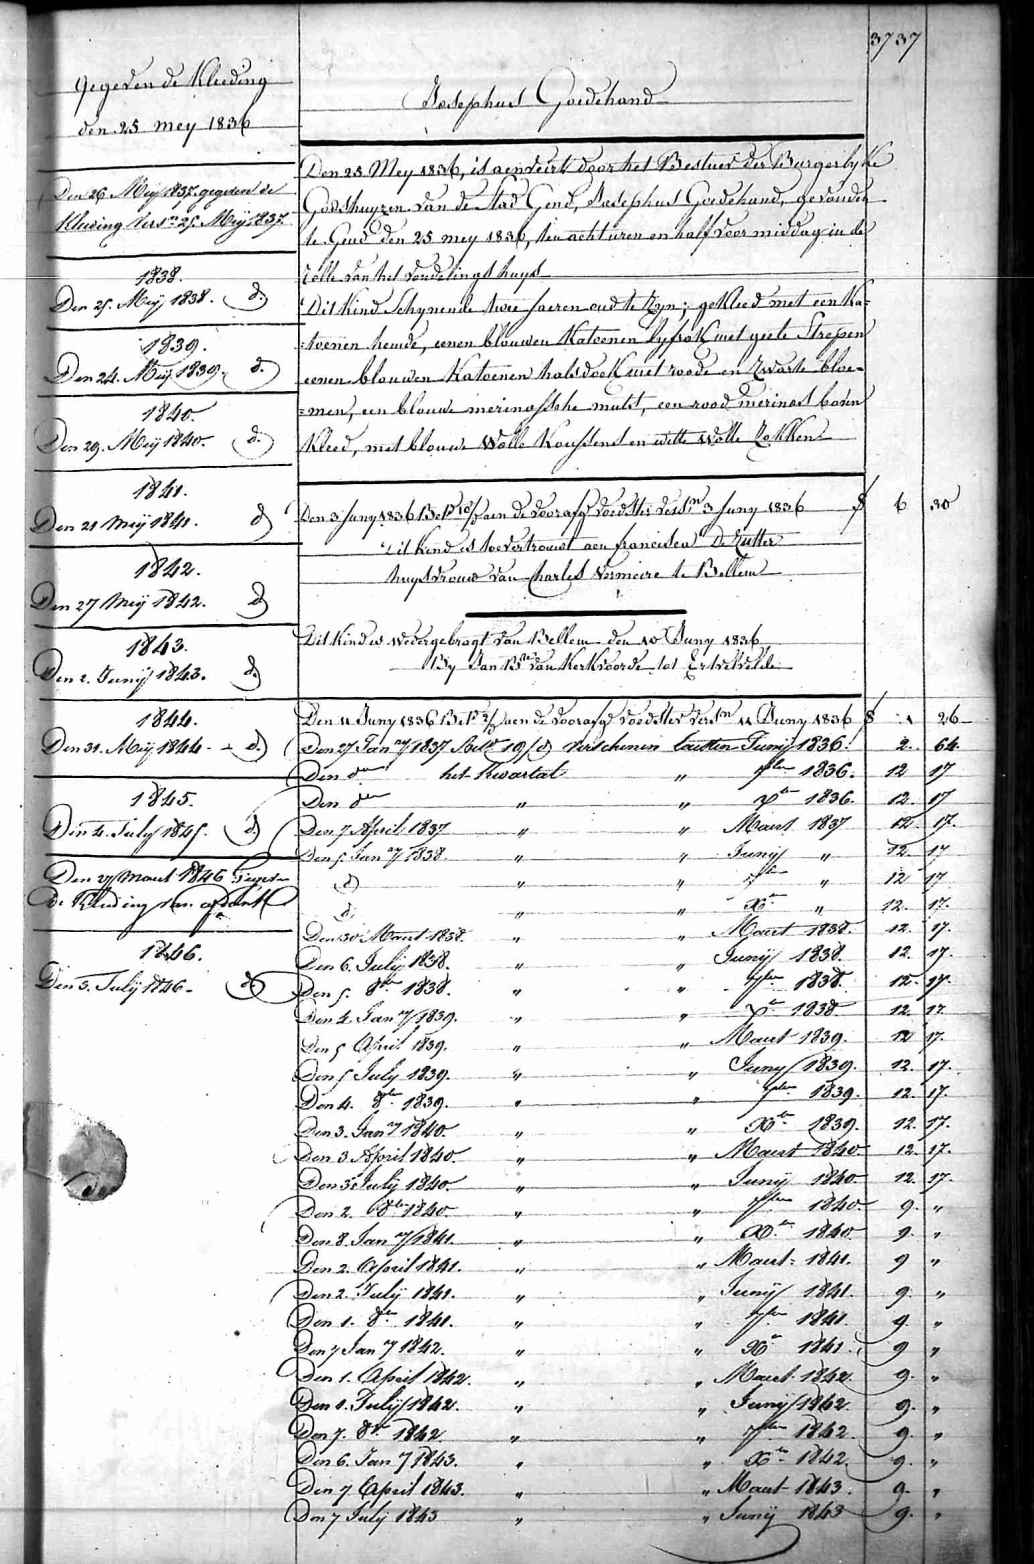 3737
Gegeven de Kleeding
den 25 mey 1836
Den 26 Meij 1837 gegeven de
Kleeding vers.n 25 Meij 1837
1838.
Den 25. Meij 1838. d.
1839.
Den 24. Meij 1839. d.
1840.
Den 29. Meij 1840. d.
1841.
Den 21 Meij 1841. d
1842.
Den 27 Meij 1842. d
1843.
Den 2. Junij 1843. d
1844.
Den 31. Meij 1844 - d.
1845.
Den 4. July 1845. d
Den 27 Maart 1846
de Kleeding
1846.
Den 3. Julij 1846. d
Josephus Goedehand
Den 25 Mey 1836, is aenveirt door het Bestuer der Burgerlyke
Godshuyzen van de Stad Gend, Josephus Goedehand, gevonden
te Gend den 25 mey 1836, ten acht uren en half voormiddag in de
rolle van het vondelingshuys
Dit kind Schynende twee jaeren oud te Zyn; gekleed met een ka=
=toenen hemde, eenen blouwen Katoenen lyfrok met geele Strepen
eenen blouwen Katoenen halsdoek met roode en Zwarte bloe=
=men, een blouwe merinossche muts, een rood merinos boven
Kleed, met blouwe Wolle Koussens en witte Wolle Zokken
Den 3 Juny 1836 Bet.d aen de voorafg. voedster vers.n 3 Juny 1836 f 6 30
Dit kind is toevertrouwt aen francisca De Zutter
huysvrouw van Charles Vermeire te Bellem
Dit kind is wedergebragt van Bellem den 10 Juny 1836
By Jan B.te van Kerkvoorde tot Ertvelde
Den 11 Juny 1836 Bet.d aen de voorafg. voedster vers.n 11 Juny 1836 f 1 26
Den 27 Jan.y 1837 verschenen Junij 1836. 2. 64
Den d.en het Kwartal " 7ber 1836. 12 17
Den d.en " " Xer 1836. 12. 17
Den 7 April 1837 " " Maart 1837 12. 17.
Den 5 Jan.y 1838. " " Junij " 12. 17
d " " 7ber " 12 17
d. " " Xer " 12. 17.
Den 30 Maart 1838. " " Maart 1838. 12. 17.
Den 6. Julij 1838. " " Junij 1838. 12. 17.
Den 5. 8ber 1838. " " 7ber 1838. 12. 17.
Den 4. Jan.y 1839. " " Xer 1838 12. 17.
Den 5 April 1839. " " Maart 1839. 12 17.
Den 5 July 1839. " " Juny 1839. 12. 17.
Den 4. 8ber 1839. " " 7ber 1839. 12. 17.
Den 3. Jan.y 1840. " " Xer 1839. 12. 17.
Den 3 April 1840. " " Maart 1840. 12. 17.
Den 3 July 1840. " " Junij 1840 12. 17.
Den 2. 8ber 1840 " " 7ber 1840 9. "
Den 8. Jan.y 1841. " " Xer 1840 9. "
Den 2. April 1841. " " Maart 1841. 9 "
Den 2. July 1841. " " Junij 1841. 9. "
Den 1. 8ber 1841. " " 7ber 1841. 9. "
Den 7 Jan.y 1842. " " Xer 1841. 9 "
Den 1. April 1842. " " Maart 1842. 9. "
Den 1. Julij 1842. " " Junij 1842 9. "
Den 7. 8ber 1842 " " 7ber 1842 9. "
Den 6. Jan.y 1843. " " Xer 1842. 9. "
Den 7 April 1843. " " Maart 1843. 9. "
Den 7 July 1843 " " Junij 1843 9. "